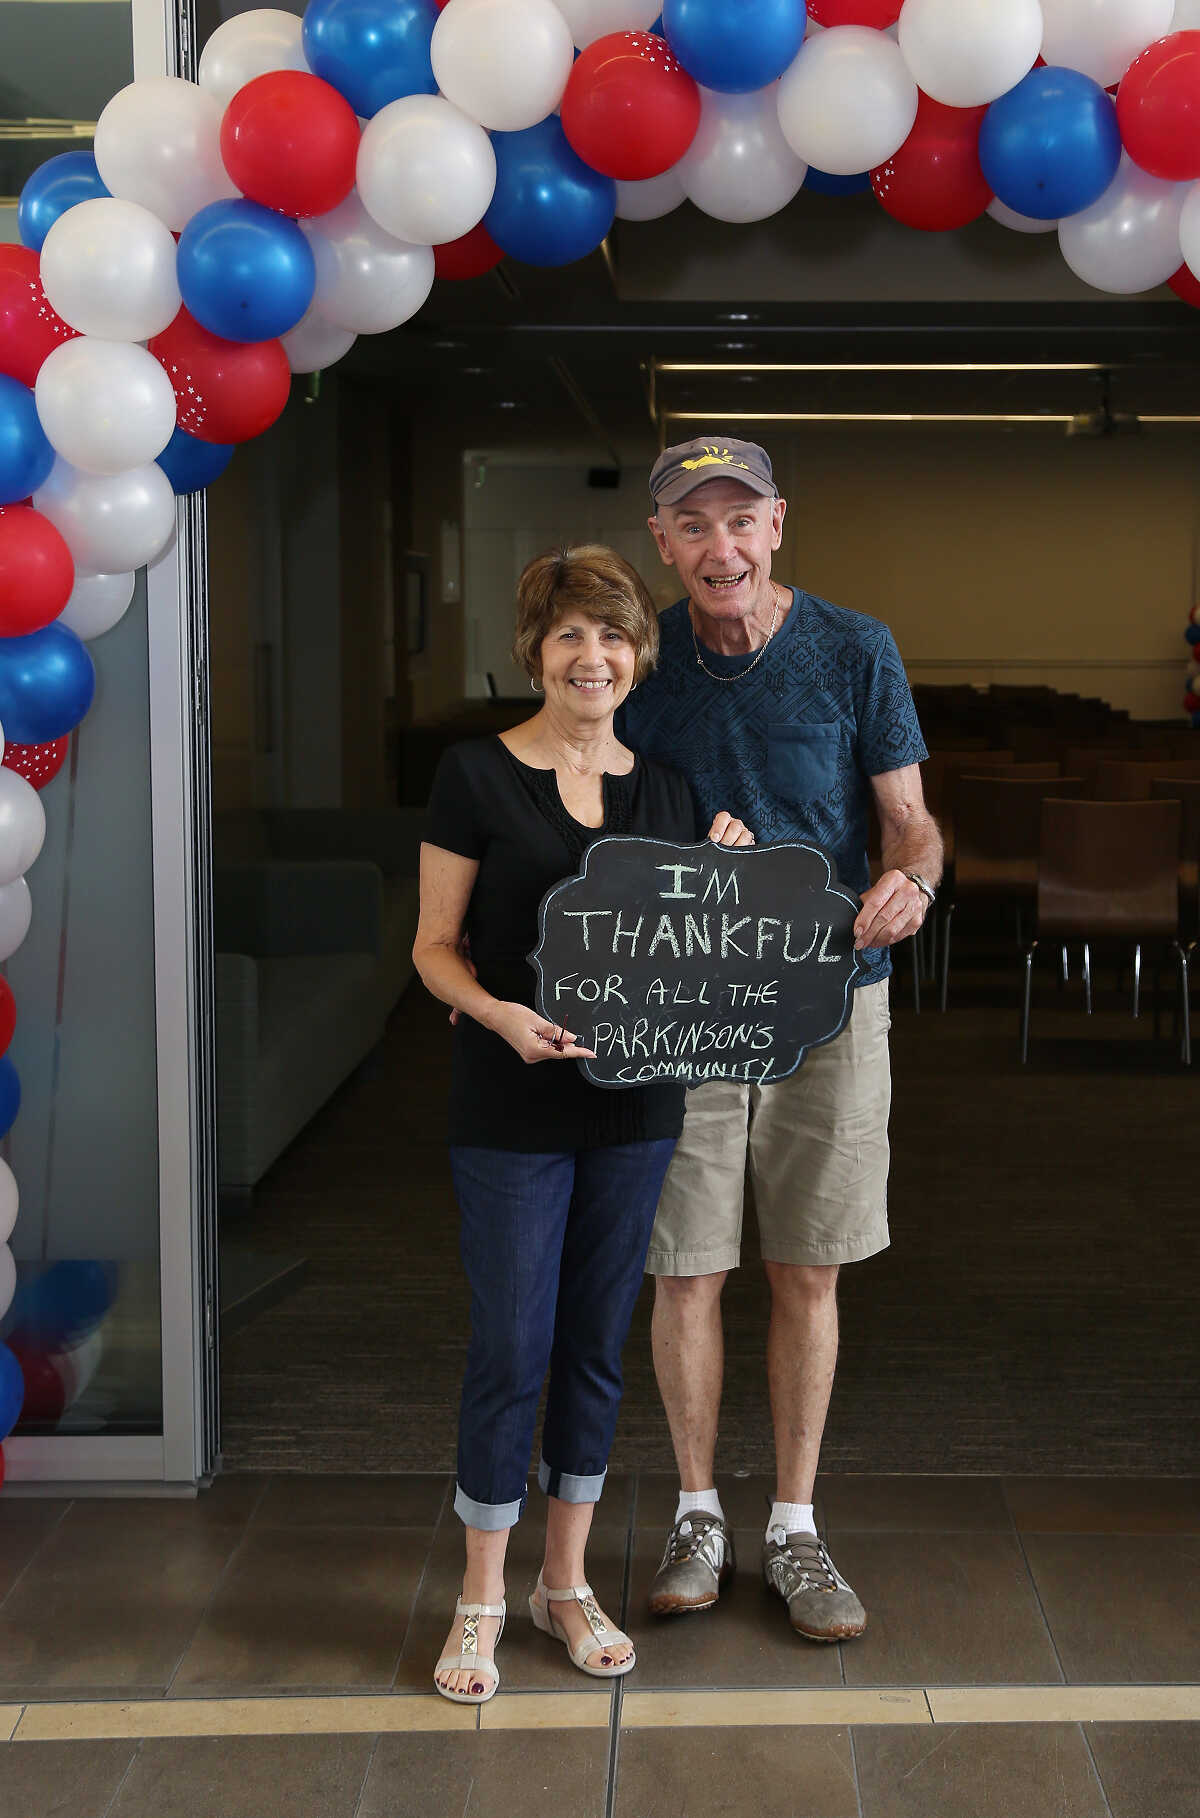 I'M
THANKFUL
FOR ALL THE
PARKINSON'S
COMMUNITY